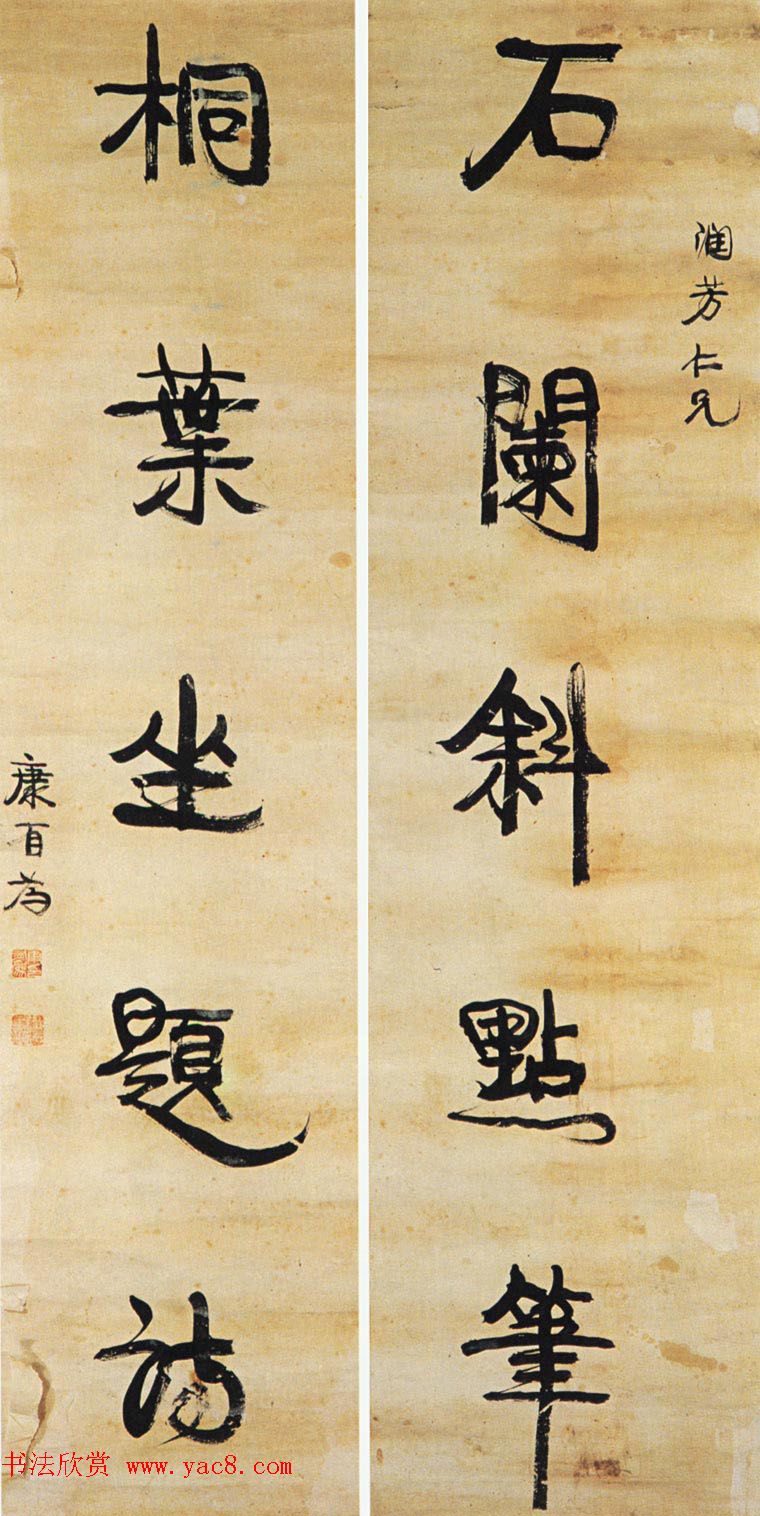 石闌斜點筆
潤芳仁兄
桐葉坐題詩
康有為
书法欣赏 www.yac8.com